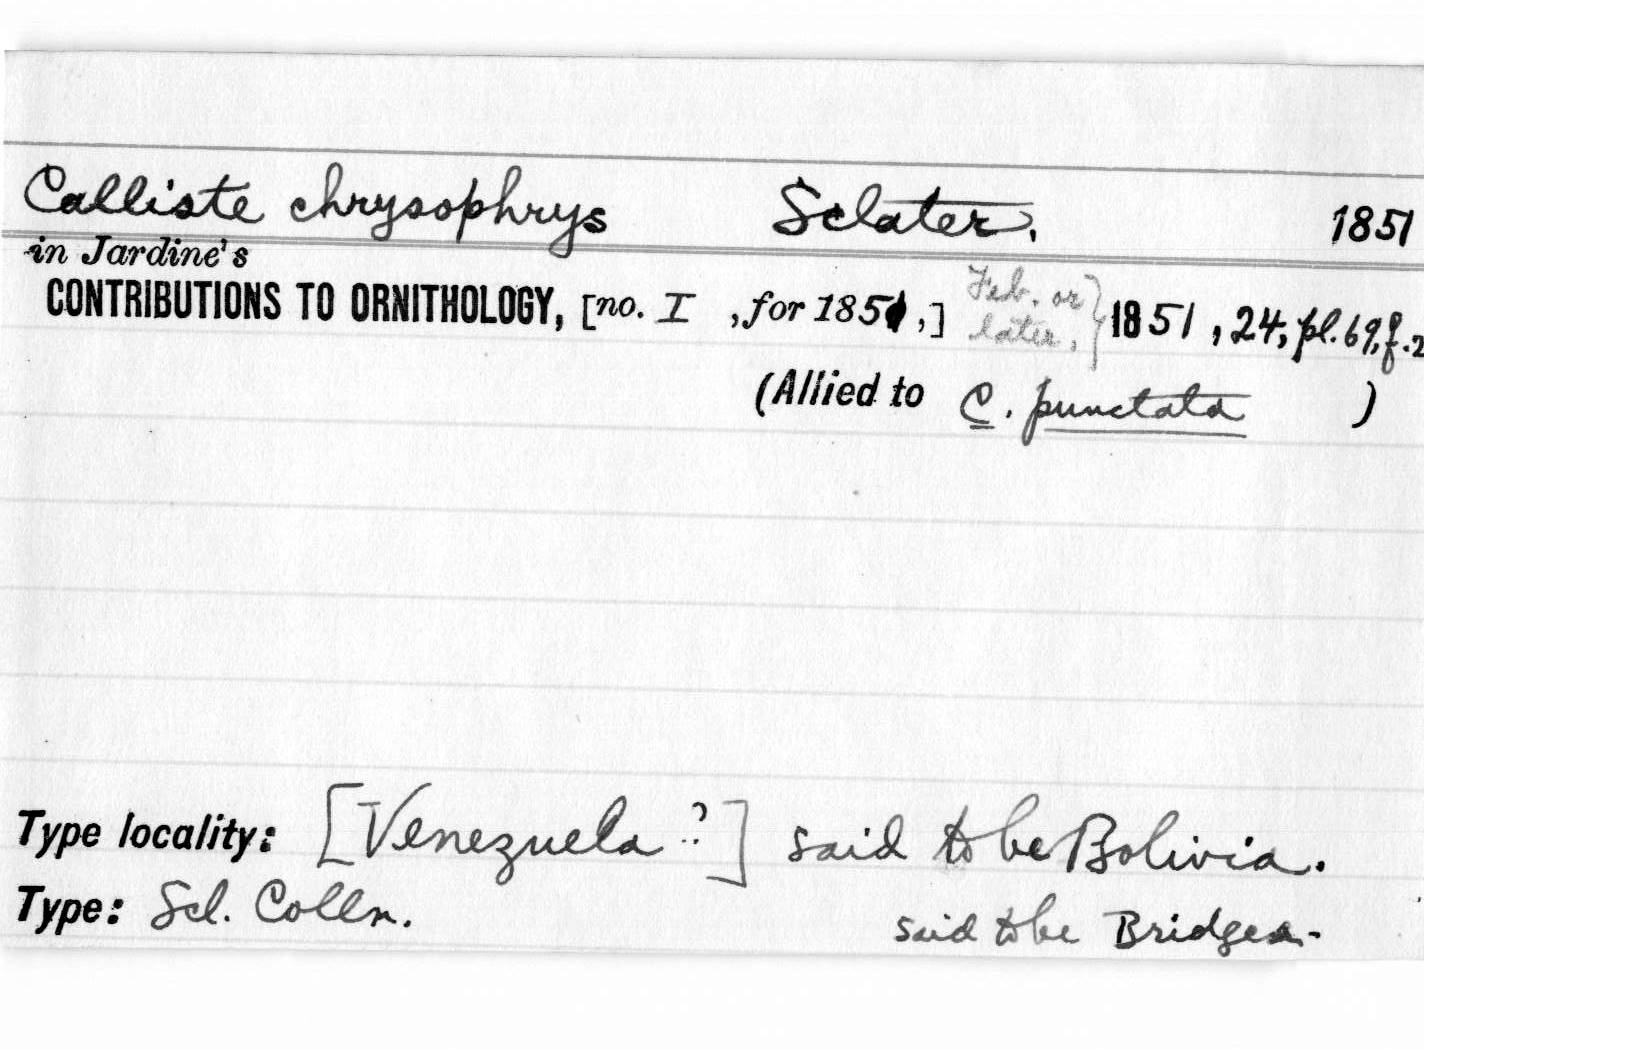 Calliste chrysophrys Sclater. 1851
in Jardine's
CONTRIBUTIONS TO ORNITHOLOGY, [no. I , for 1851 ,] Feb. or later, } 1851 , 24, pl. 69, f. 2
(Allied to C. punctata )
Type locality: [Venezuela ?] said to be Bolivia.
Type: Scl. Colln. said to be Bridges.